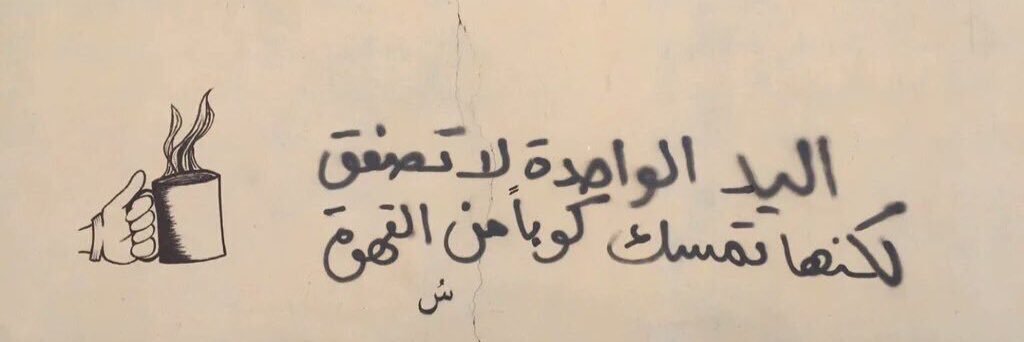 اليد الواحدة لا تصفق
لكنها تمسك كوباً من القهوة
سُ